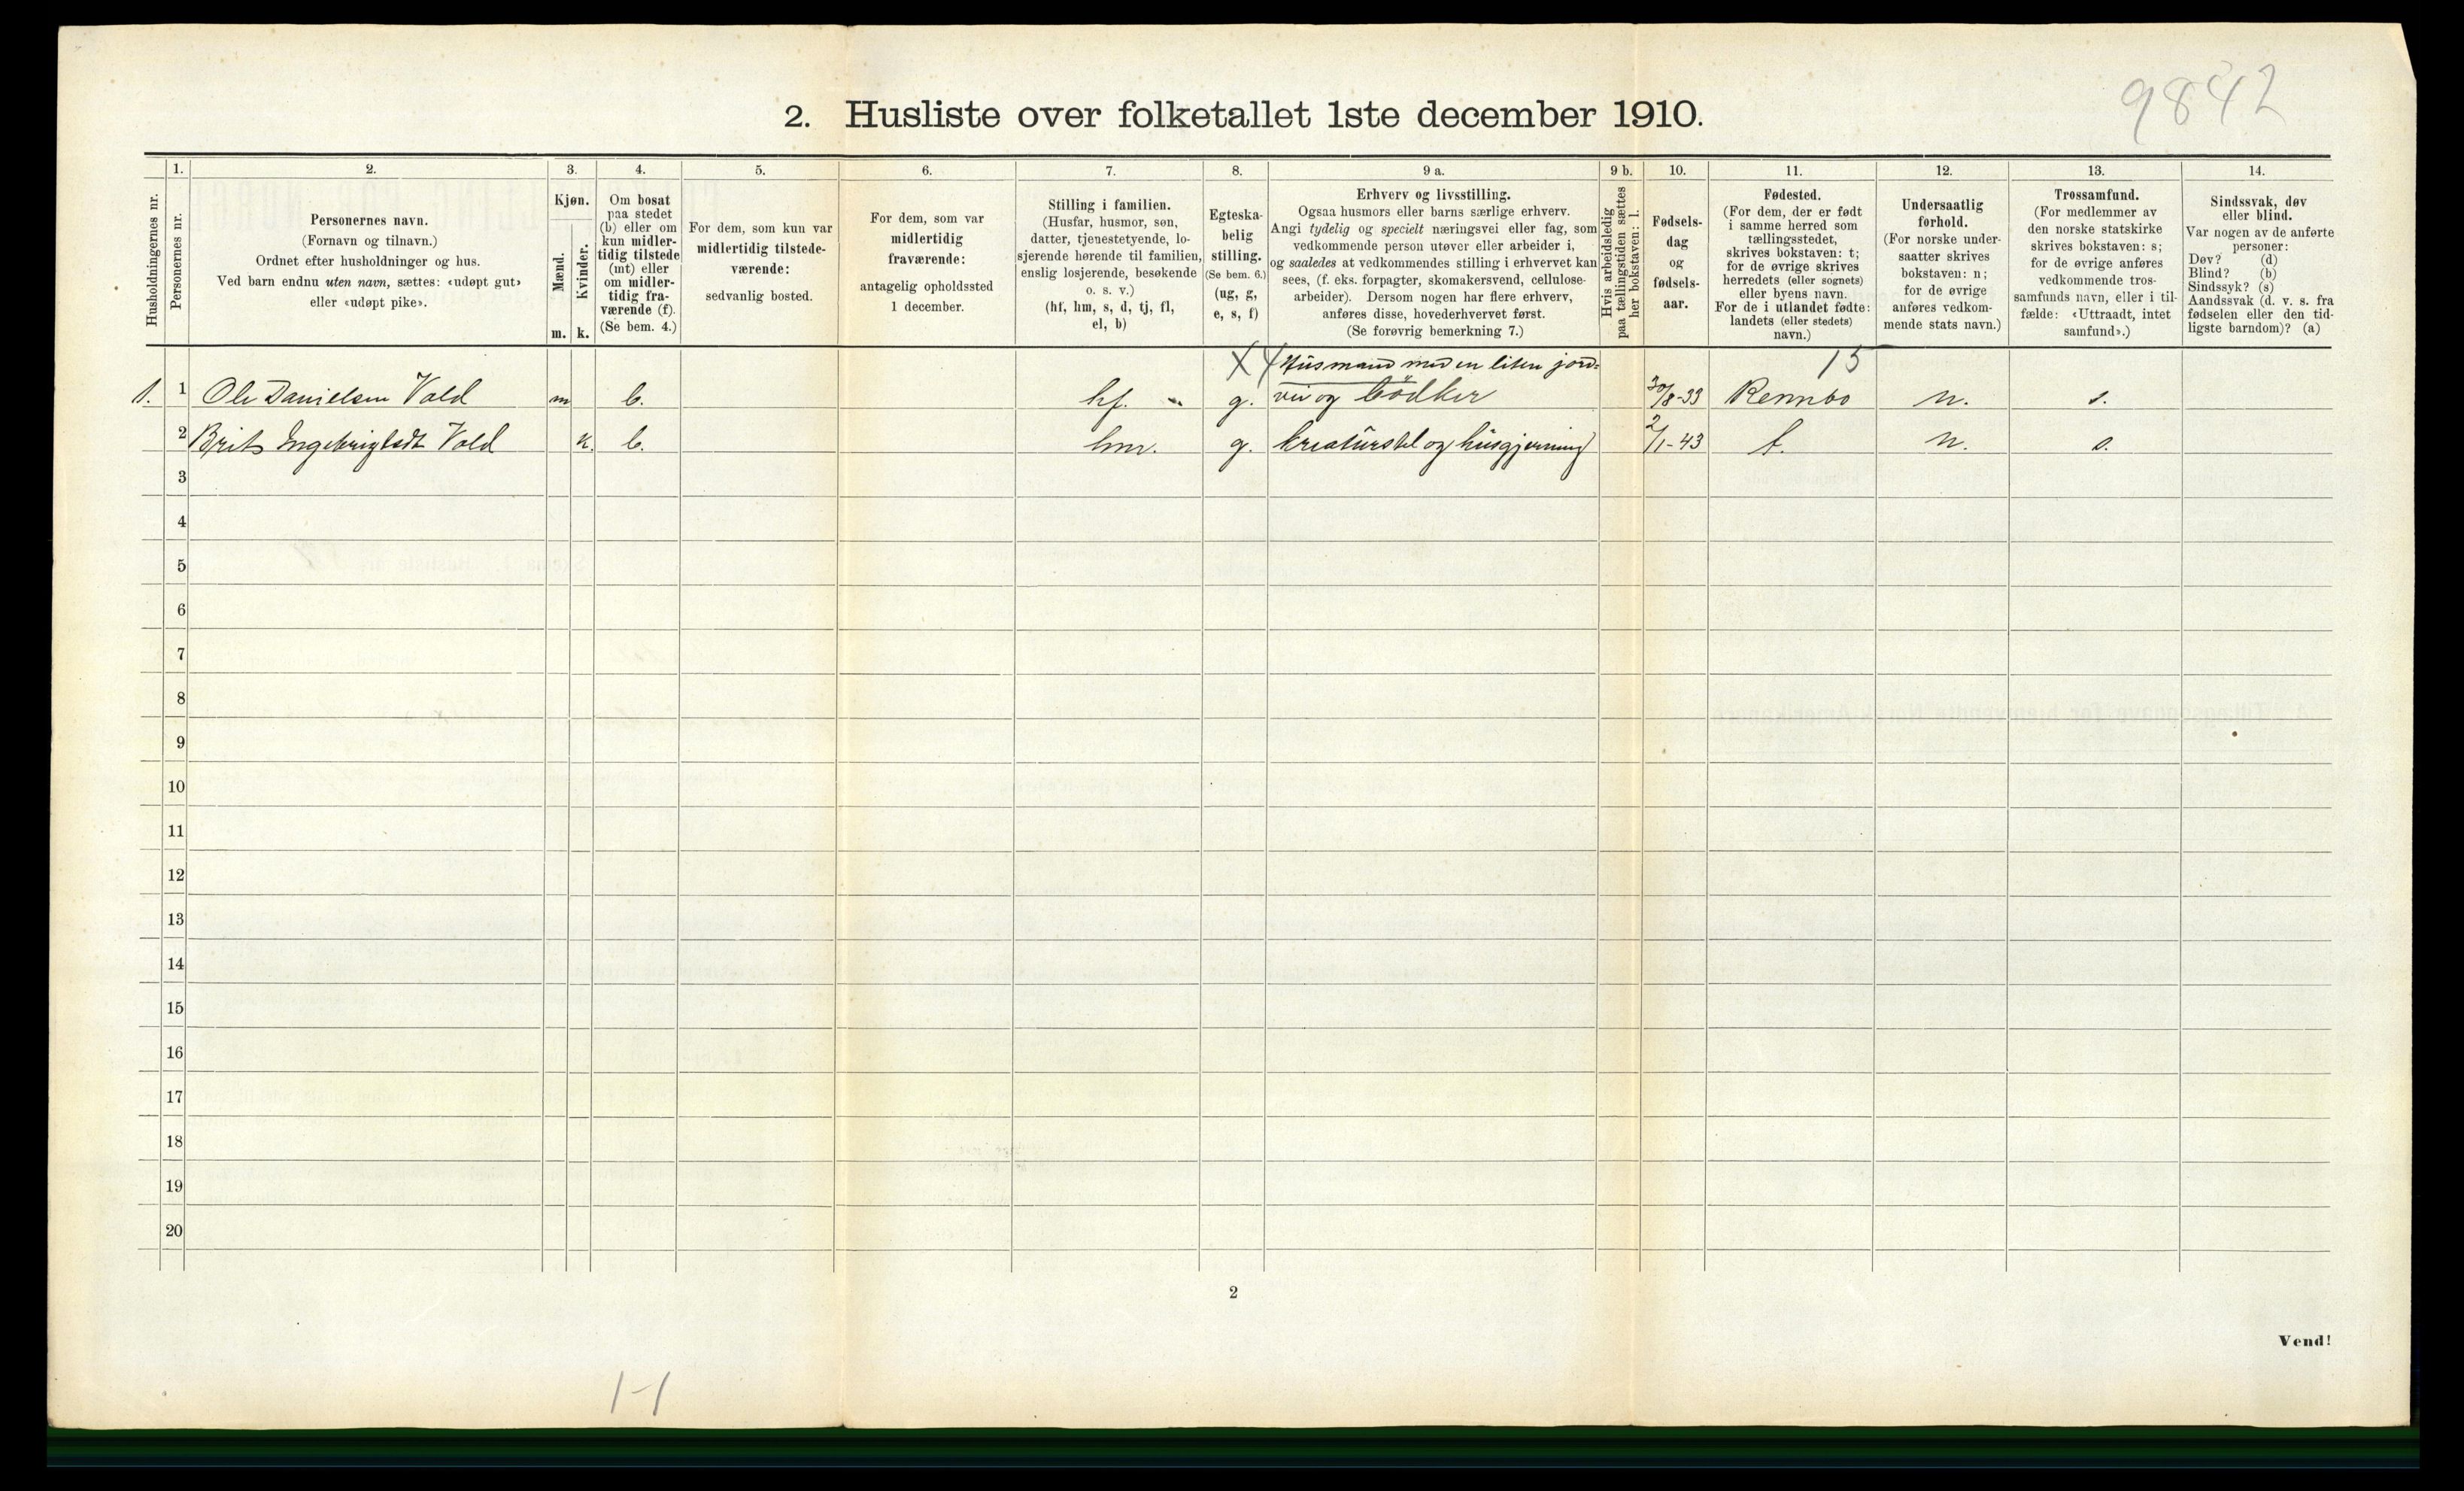 9842
2. Husliste over folketallet 1ste december 1910.
Husholdningernes nr.
1.
Personernes nr.
2.
Personernes navn.
(Fornavn og tilnavn.)
Ordnet efter husholdninger og hus.
Ved barn endnu uten navn, sættes: «udøpt gut»
eller «udøpt pike».
3.
Kjøn.
Mænd.
m.
Kvinder.
k.
4.
Om bosat
paa stedet
(b) eller om
kun midler-
tidig tilstede
(mt) eller
om midler-
tidig fra-
værende (f).
(Se bem. 4.)
5.
For dem, som kun var
midlertidig tilstede-
værende:
sedvanlig bosted.
6.
For dem, som var
midlertidig
fraværende:
antagelig opholdssted
1 december.
7.
Stilling i familien.
(Husfar, husmor, søn,
datter, tjenestetyende, lo-
sjerende hørende til familien,
enslig losjerende, besøkende
o. s. v.)
(hf, hm, s, d, tj, fl,
el, b)
8.
Egteska-
belig
stilling.
(Se bem. 6.)
(ug, g,
e, s, f)
9 a.
Erhverv og livsstilling.
Ogsaa husmors eller barns særlige erhverv.
Angi tydelig og specielt næringsvei eller fag, som
vedkommende person utøver eller arbeider i,
og saaledes at vedkommendes stilling i erhvervet kan
sees, (f. eks. forpagter, skomakersvend, cellulose-
arbeider). Dersom nogen har flere erhverv,
anføres disse, hovederhvervet først.
(Se forøvrig bemerkning 7.)
9 b.
Hvis arbeidsledig
paa tællingstiden sættes
her bokstaven: l.
10.
Fødsels-
dag
og
fødsels-
aar.
11.
Fødested.
(For dem, der er født
i samme herred som
tællingsstedet,
skrives bokstaven: t;
for de øvrige skrives
herredets (eller sognets)
eller byens navn.
For de i utlandet fødte:
landets (eller stedets)
navn.)
12.
Undersaatlig
forhold.
(For norske under-
saatter skrives
bokstaven: n;
for de øvrige
anføres vedkom-
mende stats navn.)
13.
Trossamfund.
(For medlemmer av
den norske statskirke
skrives bokstaven: s;
for de øvrige anføres
vedkommende tros-
samfunds navn, eller i til-
fælde: «Uttraadt, intet
samfund».)
14.
Sindssvak, døv
eller blind.
Var nogen av de anførte
personer:
Døv? (d)
Blind? (b)
Sindssyk? (s)
Aandssvak (d. v. s. fra
fødselen eller den tid-
ligste barndom)? (a)
X Husmand med en liten jord- 15
1. 1 Ole Danielsen Vold m b. hf. g. vei og bödker 30/8-33 Rennbo n. s.
2 Brit Ingebrigtsdt Vold k. b. hm. g. kreaturstel og husgjerning 2/1-43 t. n. s.
3
4
5
6
7
8
9
10
11
12
13
14
15
16
17
18
19
20
2
Vend!
1-1